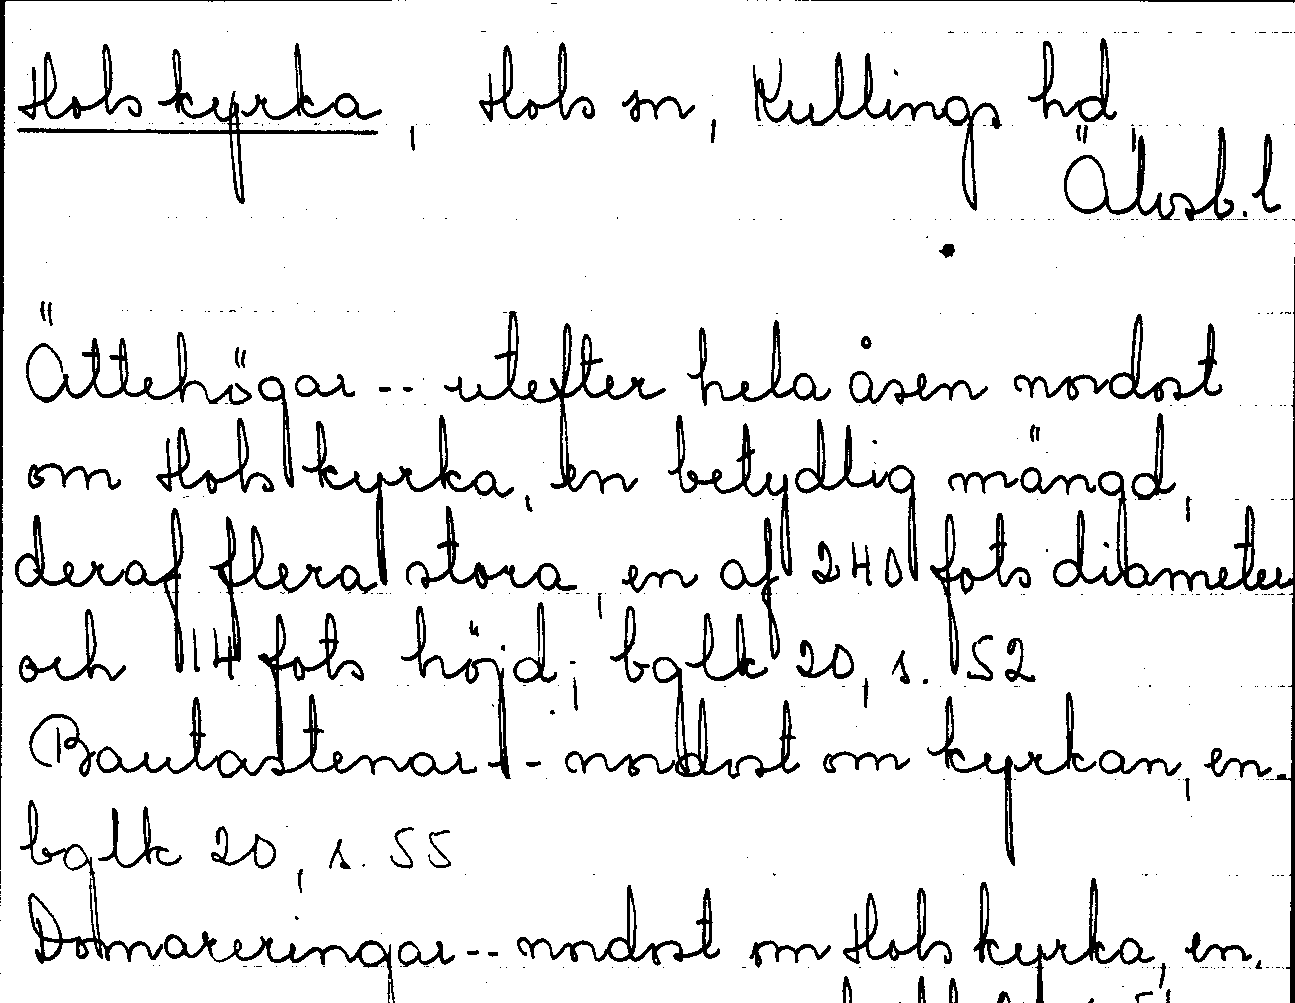 Hols kyrka, Hols sn, Kullings hd,
Älvsb. l
Ättehögar -- utefter hela åsen nordost
om Hols kyrka, en betydlig mängd,
deraf flera stora, en af 240 fots diameter
och 14 fots höjd; bglk 20, s. 52
Bautastenar -- nordost om kyrkan, en.
bglk 20, s. 55
Domareringar -- nordost om Hols kyrka, en.